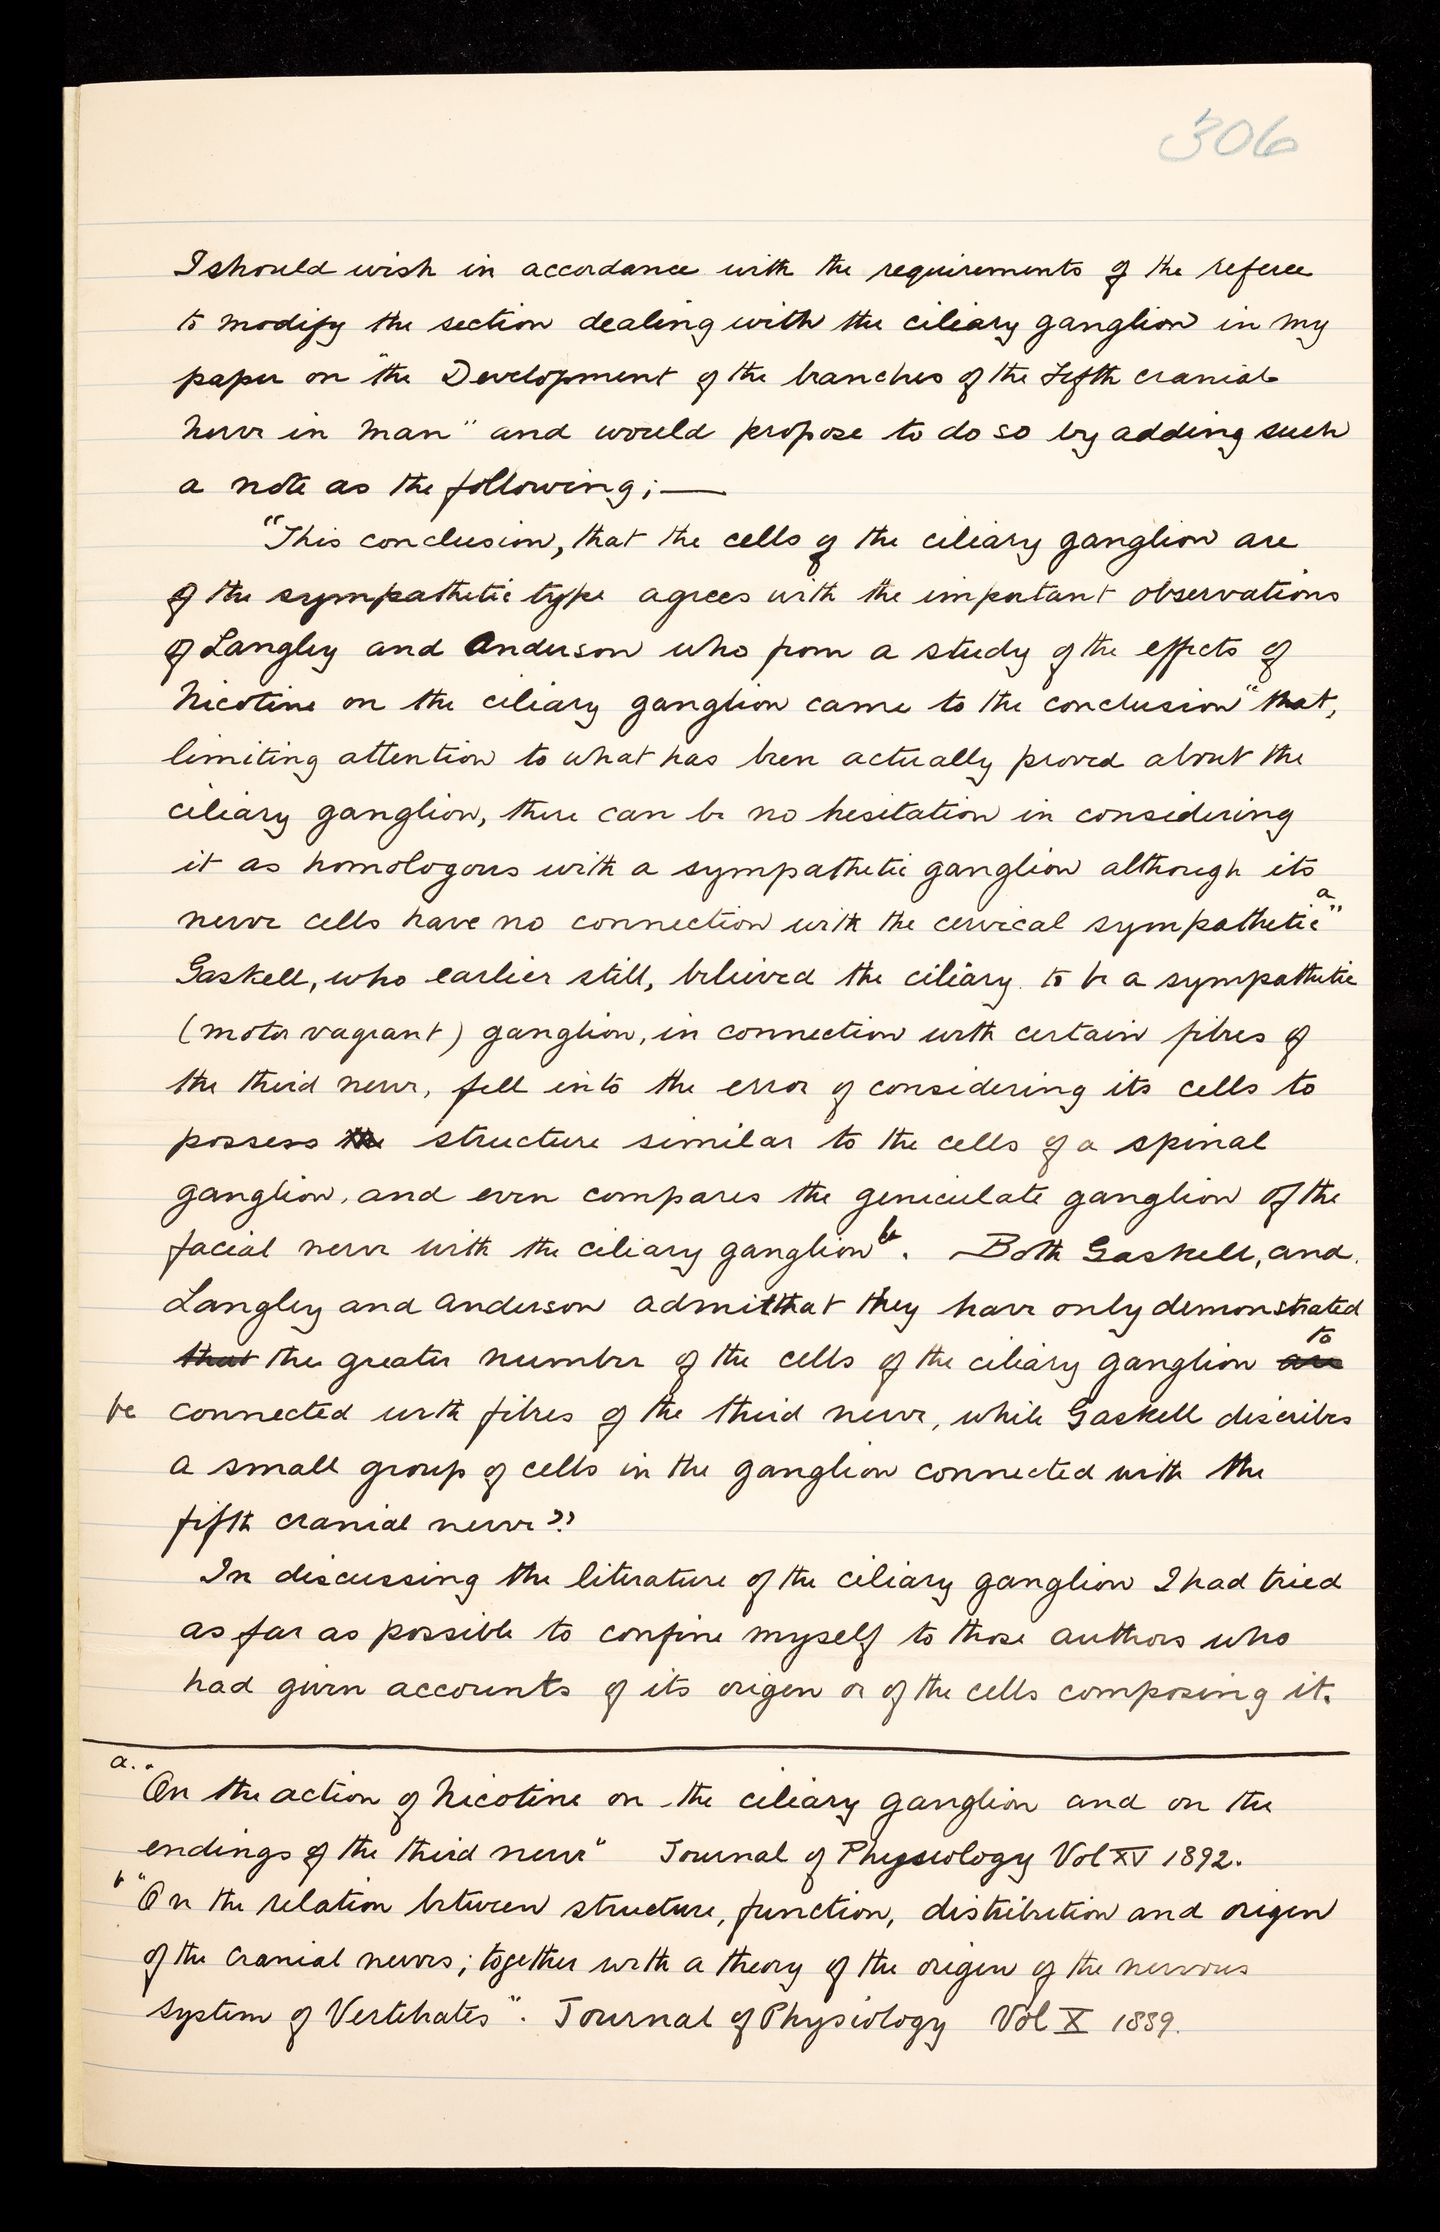 306
I should wish in accordance with the requirements of the referee
to modify the section dealing with the ciliary ganglion in my
paper on "the Development of the branches of the Fifth cranial
nerve in Man" and would propose to do so by adding such
a note as the following; —
"This conclusion, that the cells of the ciliary ganglion are
of the sympathetic type agrees with the important observations
of Langley and Anderson who from a study of the effects of
Nicotine on the ciliary ganglion came to the conclusion "that,
limiting attention to what has been actually proved about the
ciliary ganglion, there can be no hesitation in considering
it as homologous with a sympathetic ganglion although its
nerve cells have no connection with the cervical sympathetic a"
Gaskell, who earlier still, believed the ciliary to be a sympathetic
(motor vagrant) ganglion, in connection with certain fibres of
the third nerve, fell into the error of considering its cells to
possess the structure similar to the cells of a spinal
ganglion, and even compares the geniculate ganglion of the
facial nerve with the ciliary ganglion b. Both Gaskell, and
Langley and Anderson admit that they have only demonstrated
that the greater number of the cells of the ciliary ganglion are to
be connected with fibres of the third nerve, while Gaskell describes
a small group of cells in the ganglion connected with the
fifth cranial nerve".
In discussing the literature of the ciliary ganglion I had tried
as far as possible to confine myself to those authors who
had given accounts of its origin or of the cells composing it.
a. "On the action of Nicotine on the ciliary ganglion and on the
endings of the third nerve" Journal of Physiology Vol XV 1892.
b "On the relation between structure, function, distribution and origin
of the cranial nerves; together with a theory of the origin of the nervous
system of Vertebrates". Journal of Physiology Vol X 1889.